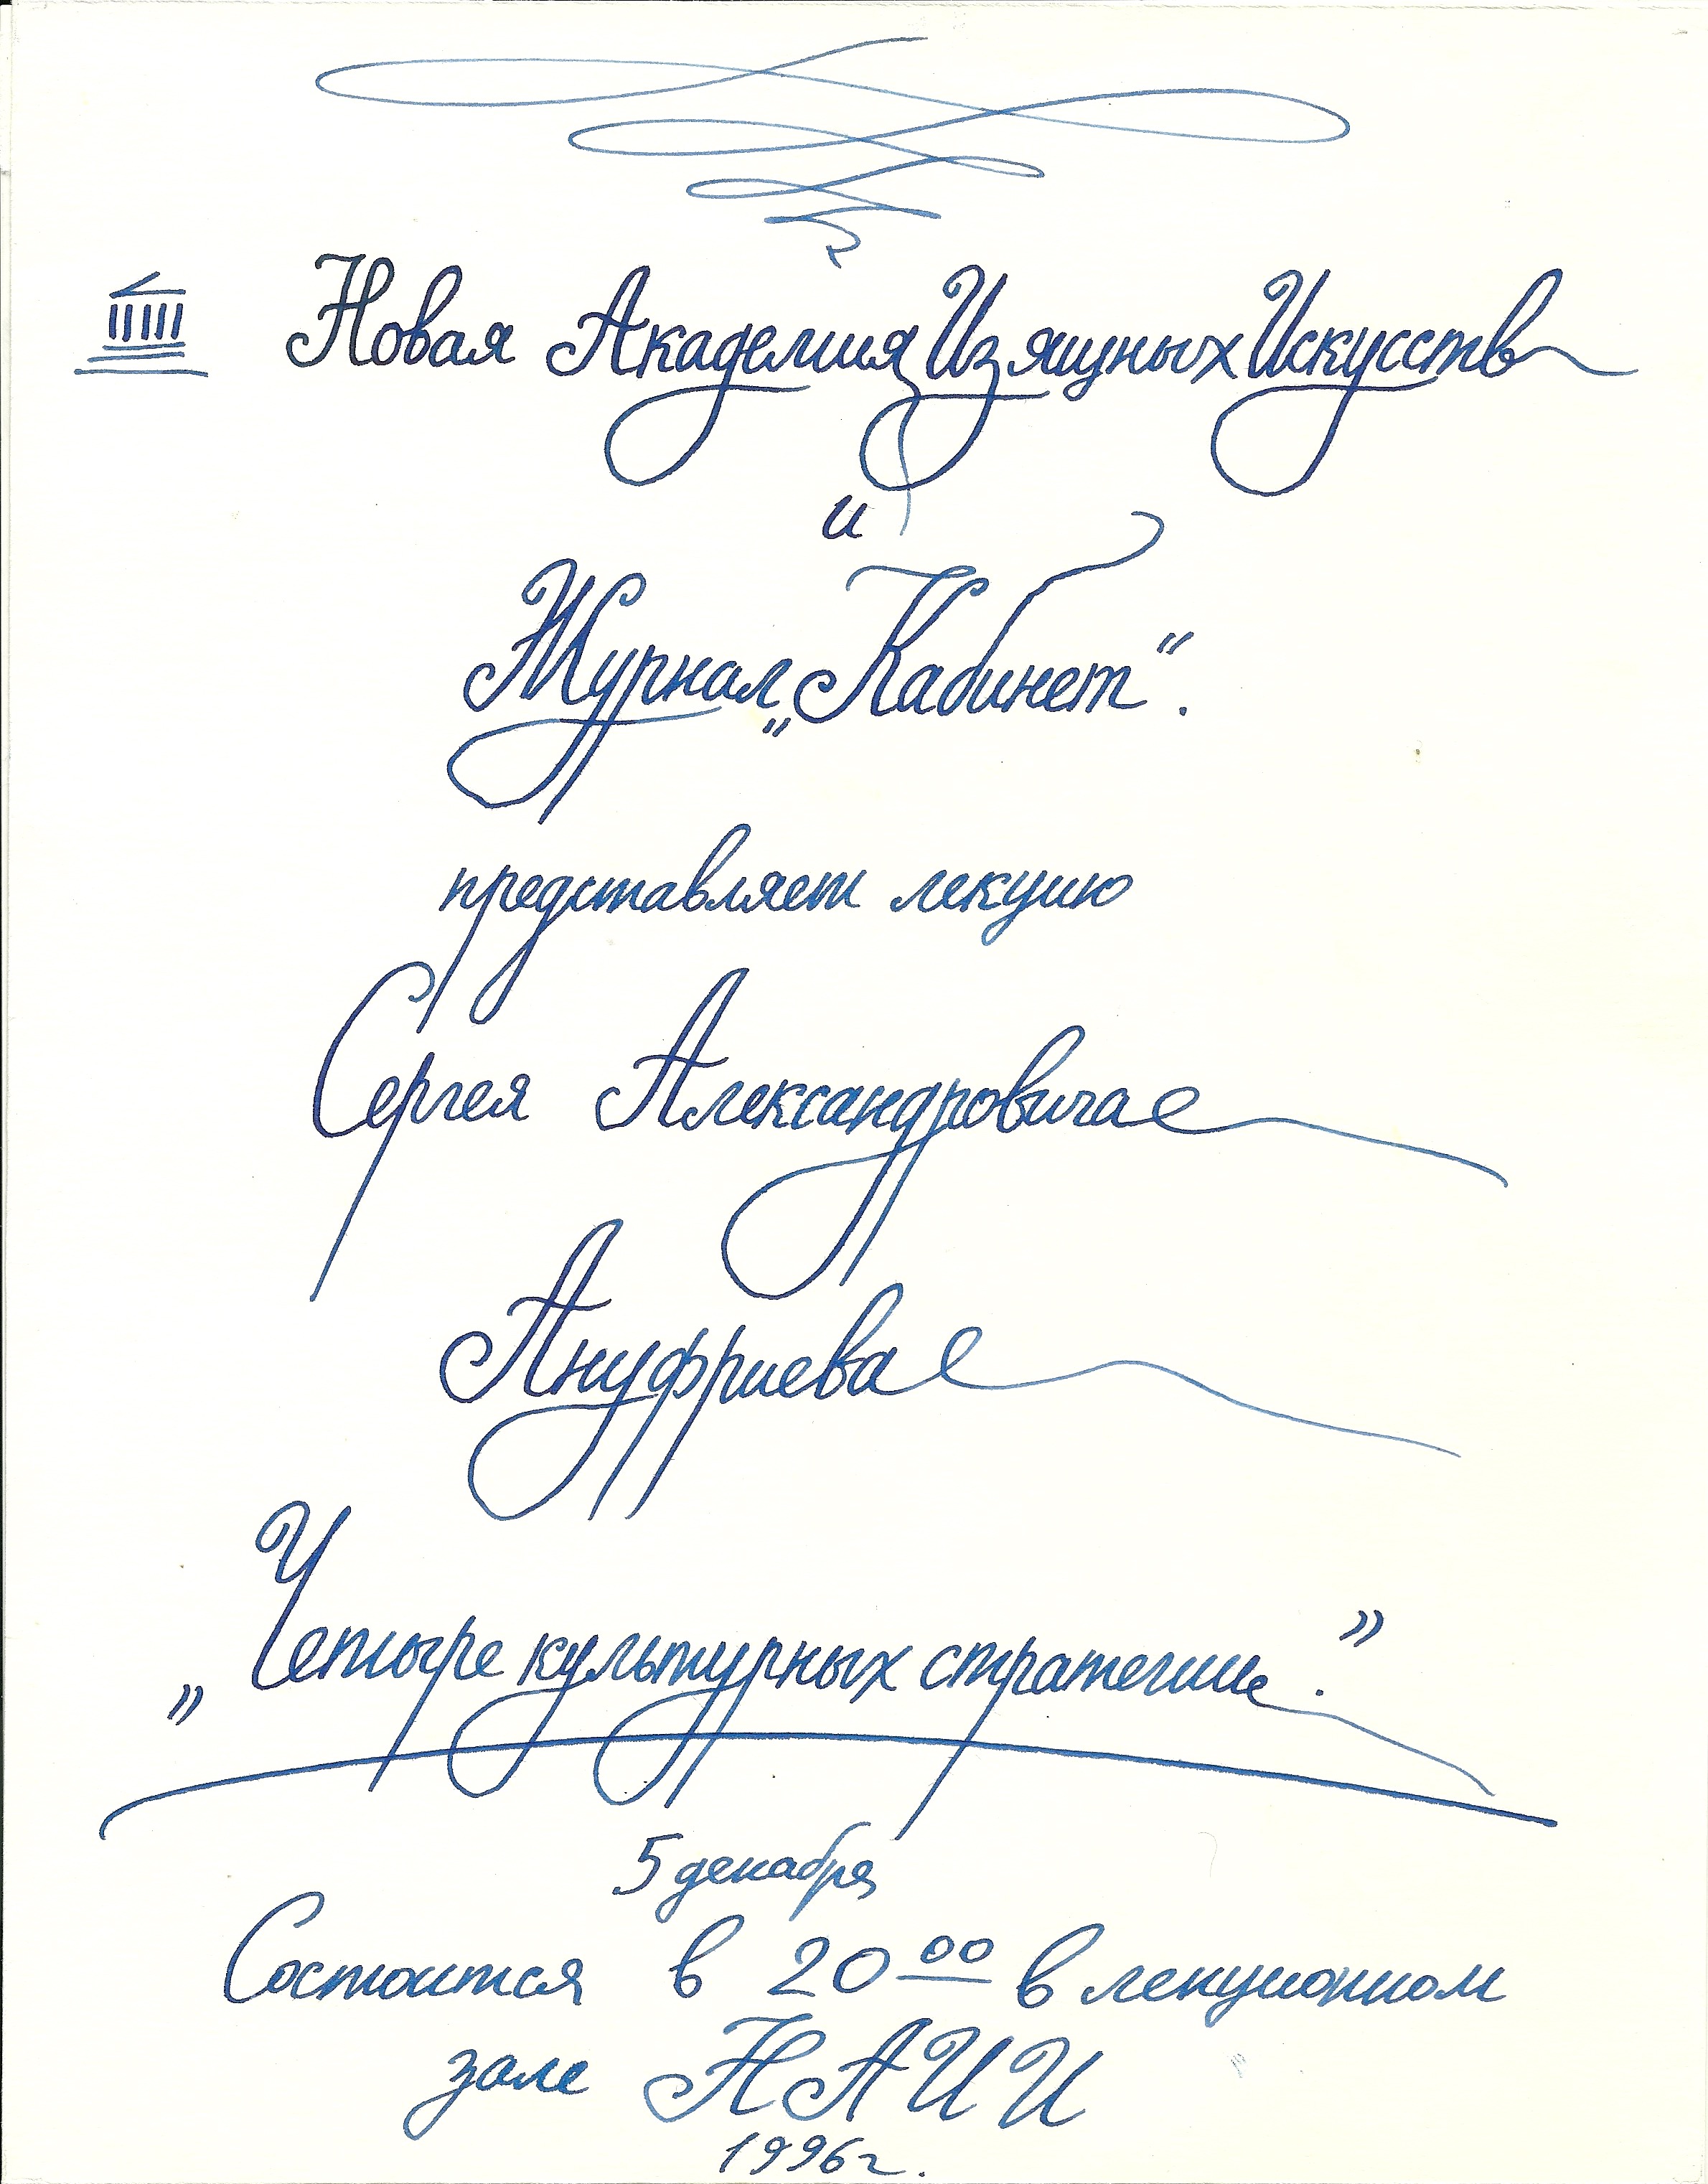 Новая Академия Изящных Искусств
и
Журнал „Кабинет“.
представляет лекцию
Сергея Александровича
Ануфриева
„Четыре культурных стратегии.”
5 декабря
Состоится в 20⁰⁰ в лекционном
зале НАИИ
1996г.